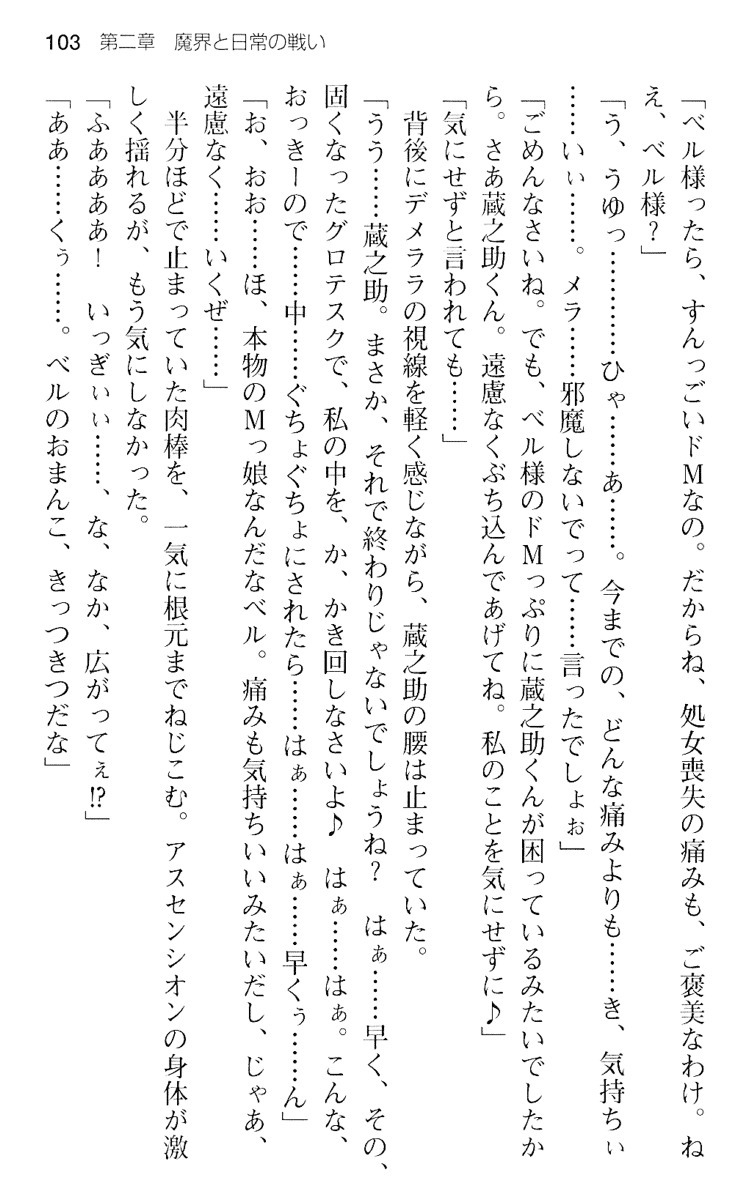 103 第二章 魔界と日常の戦い
「ベル様ったら、すんっごいドMなの。だからね、処女喪失の痛みも、ご褒美なわけ。ね
え、ベル様?」
「う、うゆっ…………ひゃ……あ……。今までの、どんな痛みよりも……き、気持ちぃ
……いぃ……。メラ……邪魔しないでって……言ったでしょぉ」
「ごめんなさいね。でも、ベル様のドMっぷりに蔵之助くんが困っているみたいでしたか
ら。さあ蔵之助くん。遠慮なくぶち込んであげてね。私のことを気にせずに♪」
「気にせずと言われても……」
背後にデメララの視線を軽く感じながら、蔵之助の腰は止まっていた。
「うう……蔵之助。まさか、それで終わりじゃないでしょうね? はぁ……早く、その、
固くなったグロテスクで、私の中を、か、かき回しなさいよ♪ はぁ……はぁ。こんな、
おっきーので……中……ぐちょぐちょにされたら……はぁ……はぁ……早くぅ……ん」
「お、おお……ほ、本物のMっ娘なんだなベル。痛みも気持ちいいみたいだし、じゃあ、
遠慮なく……いくぜ……」
半分ほどで止まっていた肉棒を、一気に根元までねじこむ。アスセンシオンの身体が激
しく揺れるが、もう気にしなかった。
「ふああああ! いっぎぃぃ……、な、なか、広がってぇ!?」
「ああ……くぅ……。ベルのおまんこ、きっつきつだな」